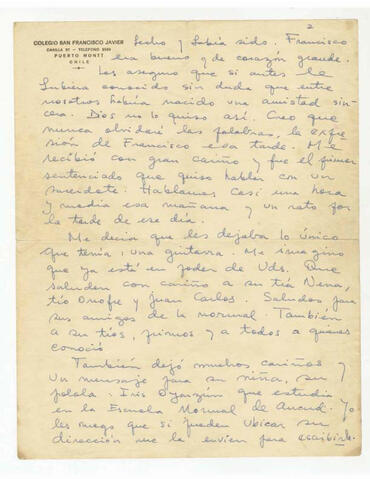 2
COLEGIO SAN FRANCISCO JAVIER
CASILLA 57 - TELEFONO
PUERTO MONTT
CHILE
hecho y había sido. Francisco
era bueno y de corazón grande.
Les aseguro que si antes le
hubiera conocido sin duda que entre
nosotros habría nacido una amistad sin-
cera. Dios no lo quiso así. Creo que
nunca olvidaré las palabras, la expre-
sión de Francisco esa tarde. Me
recibió con gran cariño y fue el primer
sentenciado que quiso hablar con un
sacerdote. Hablamos casi una hora
y media esa mañana y un rato por
la tarde de ese día.
Me decía que les dejaba lo único
que tenía: una guitarra. Me imagino
que ya está en poder de Uds. Que
saluden con cariño a su tía Nena,
tío Onofre y Juan Carlos. Saludos para
sus amigos de la normal. También
a sus tíos, primos y a todos a quienes
conoció
También dejó muchos cariños y
un mensaje para su niña, su
polola. Iris Oyarzún que estudia
en la Escuela Normal de Ancud. Yo
les ruego que si pueden ubicar su
dirección me la envíen para escribirle.